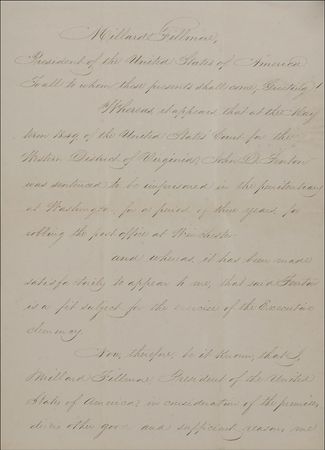 Millard Fillmore,
President of the United States of America
To all to whom these presents shall come, Greeting!
Whereas it appears, that at the May
term 1849 of the United States Court for the
Western District of Virginia, John D.
was sentenced to be imprisoned in the penitentiary
at Washington for a period of three years, for
robbing the post office at Winchester
and whereas, it has been made
satisfactorily to appear to me, that said
is a fit subject for the exercise of the Executive
clemency.
Now, therefore, be it known, that I,
Millard Fillmore, President of the United
States of America, in consideration of the premises,
divers other good and sufficient reasons me